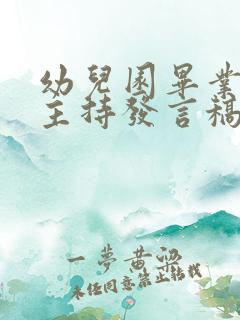 幼兒園畢業
主持發言稿
一夢黃粱
未经同意禁止转载